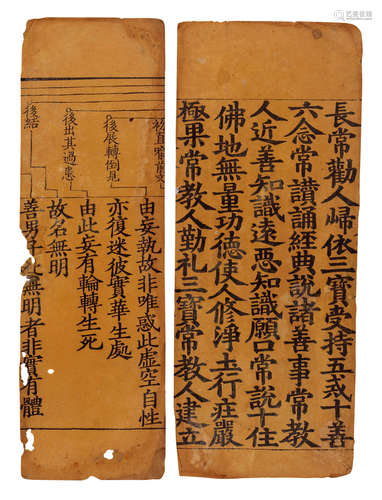 長常勸人歸依三寶受持五戒十善
六念常讚誦經典說諸善事常教
人近善知識遠惡知識願口常說十住
佛地無量功德使人修淨土行莊嚴
極果常教人勤礼三寶常教人建立
後展轉倒見
後出其過患
後結
由妄執故非唯惑此虛空自性
亦復迷彼實華生處
由此妄有輪轉生死
故名無明
善男子此無明者非實有體